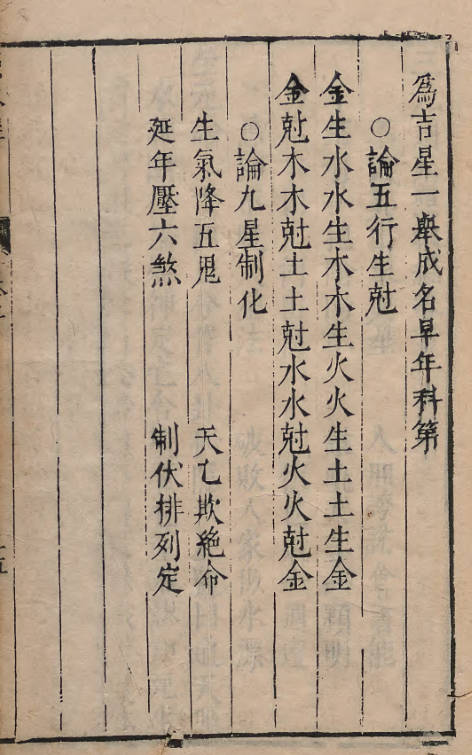 為吉星一舉成名早年科第
○論五行生尅
金生水水生木木生火火生土土生金
金尅木木尅土土尅水水尅火火尅金
○論九星制化
生氣降五鬼 天乙欺絶命
延年壓六煞 制伏排列定